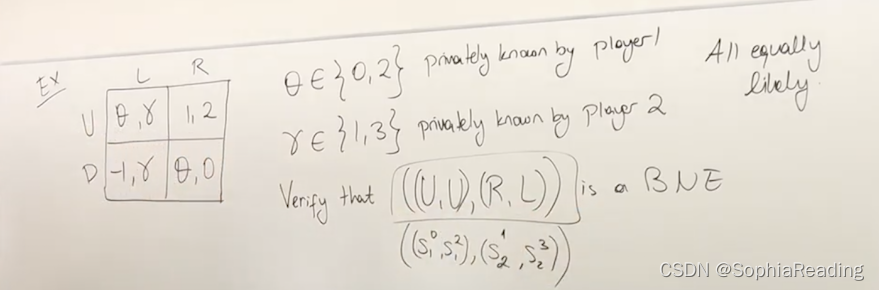 Ex
L R
U θ, γ 1, 2
D -1, γ θ, 0
θ ∈ {0, 2} privately known by player 1
γ ∈ {1, 3} privately known by Player 2
All equally
likely.
Verify that ((U, U), (R, L)) is a BNE
((S₁⁰, S₁²), (S₂¹, S₂³))
CSDN @SophiaReading